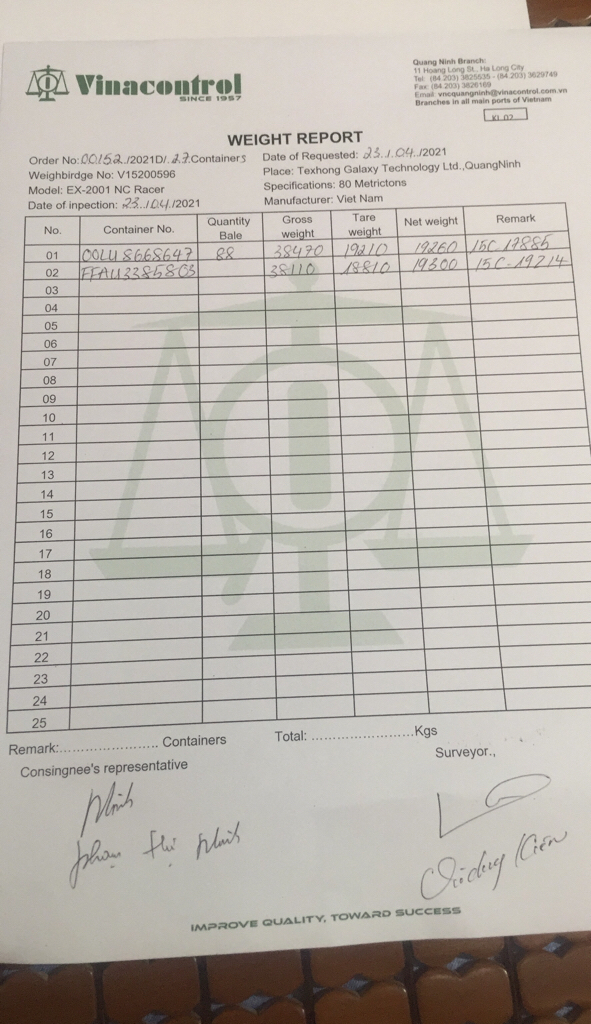 Vinacontrol
SINCE 1957
Quang Ninh Branch:
11 Hoang Long St., Ha Long City
Tel: (84.203) 3825635 - (84.203) 3629749
Fax: (84.203) 3826169
Email: vncquangninh@vinacontrol.com.vn
Branches in all main ports of Vietnam
KL 02
WEIGHT REPORT
Order No: 00152./2021D/.27.Containers
Date of Requested: 23./.04./2021
Weighbirdge No: V15200596
Place: Texhong Galaxy Technology Ltd.,QuangNinh
Model: EX-2001 NC Racer
Specifications: 80 Metrictons
Date of inpection: 23./04./2021
Manufacturer: Viet Nam
No. Container No. Quantity Bale Gross weight Tare weight Net weight Remark
01 OOLU 8668647 88 38470 19210 19260 15C 17885
02 FFAU3385803 38110 18810 19300 15C-19214
03
04
05
06
07
08
09
10
11
12
13
14
15
16
17
18
19
20
21
22
23
24
25
Remark:....................... Containers Total: ........................Kgs
Consingnee's representative
Surveyor.,
Minh
phạm thị Minh
IMPROVE QUALITY, TOWARD SUCCESS